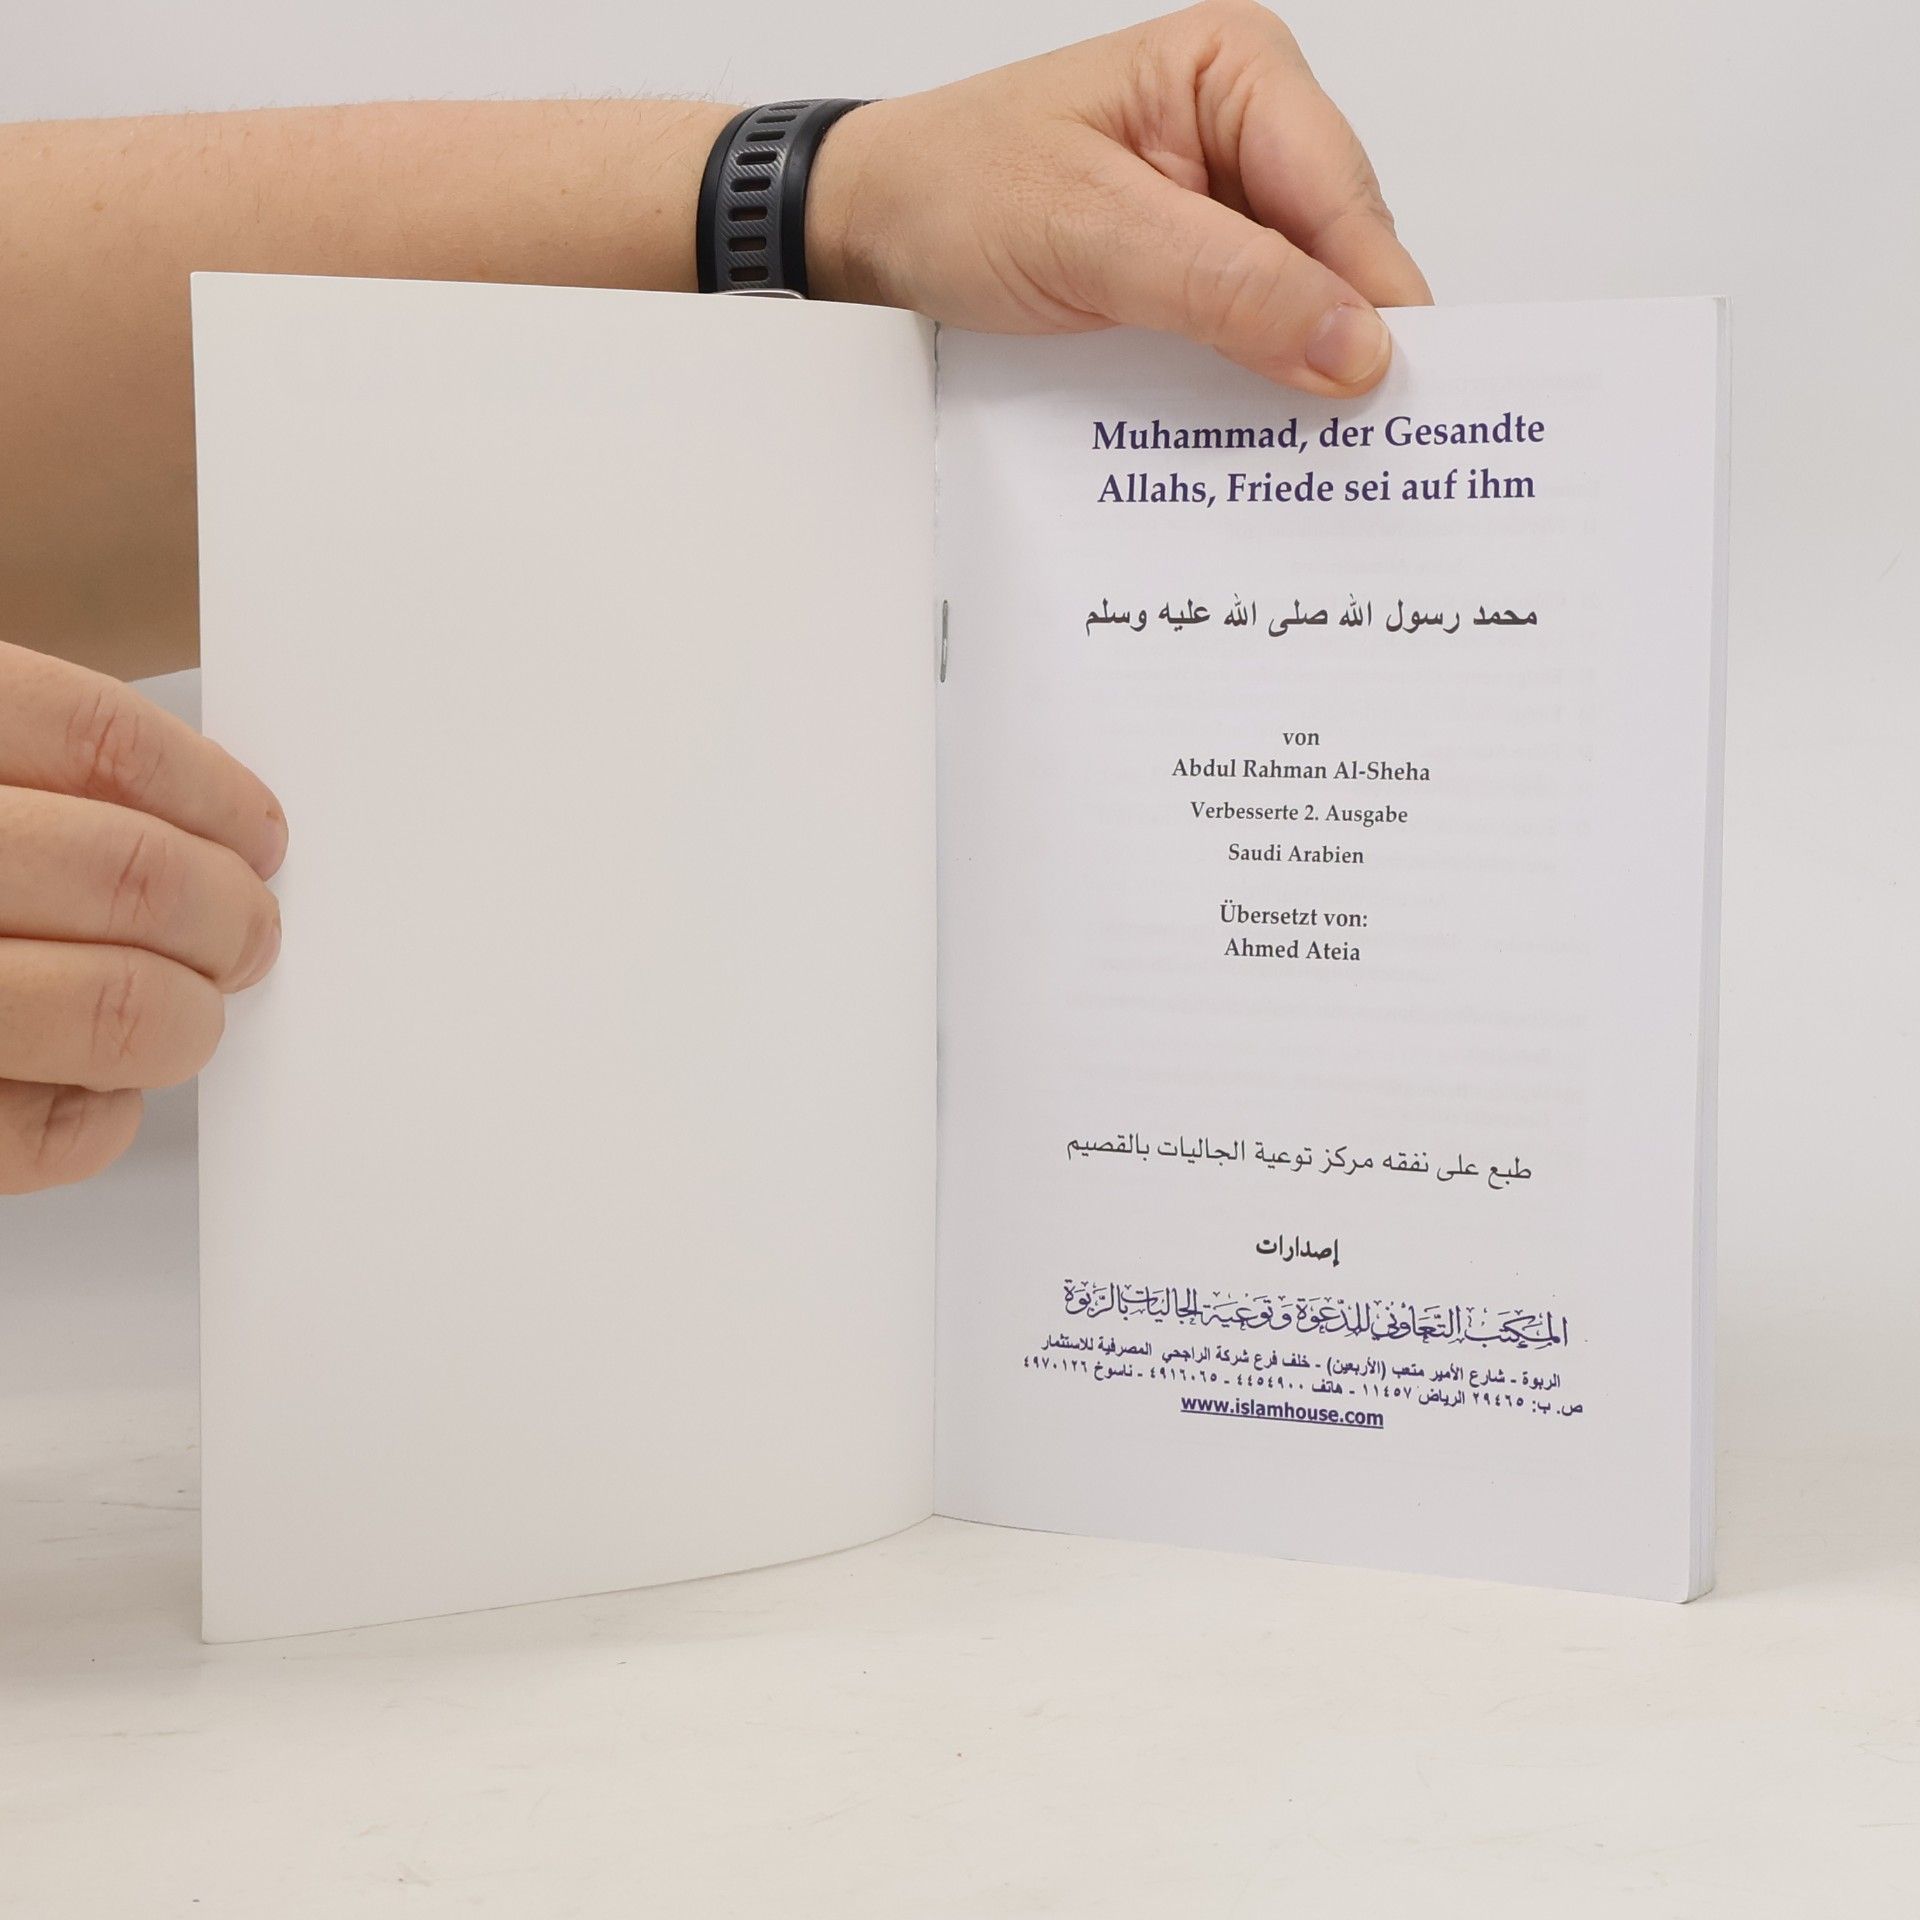 Muhammad, der Gesandte
Allahs, Friede sei auf ihm
محمد رسول الله صلى الله عليه وسلم
von
Abdul Rahman Al-Sheha
Verbesserte 2. Ausgabe
Saudi Arabien
Übersetzt von:
Ahmed Ateia
طبع على نفقه مركز توعية الجاليات بالقصيم
إصدارات
المَكتَب التَّعَاوُني للدَّعوَة وَتَوعيَة الجَاليَات بالرَّبوَة
الربوة - شارع الأمير متعب (الأربعين) - خلف فرع شركة الراجحي المصرفية للاستثمار
ص. ب: ٢٩٤٦٥ الرياض ١١٤٥٧ - هاتف ٤٤٥٤٩٠٠ - ٤٩١٦٠٦٥ - ناسوخ ٤٩٧٠١٢٦
www.islamhouse.com